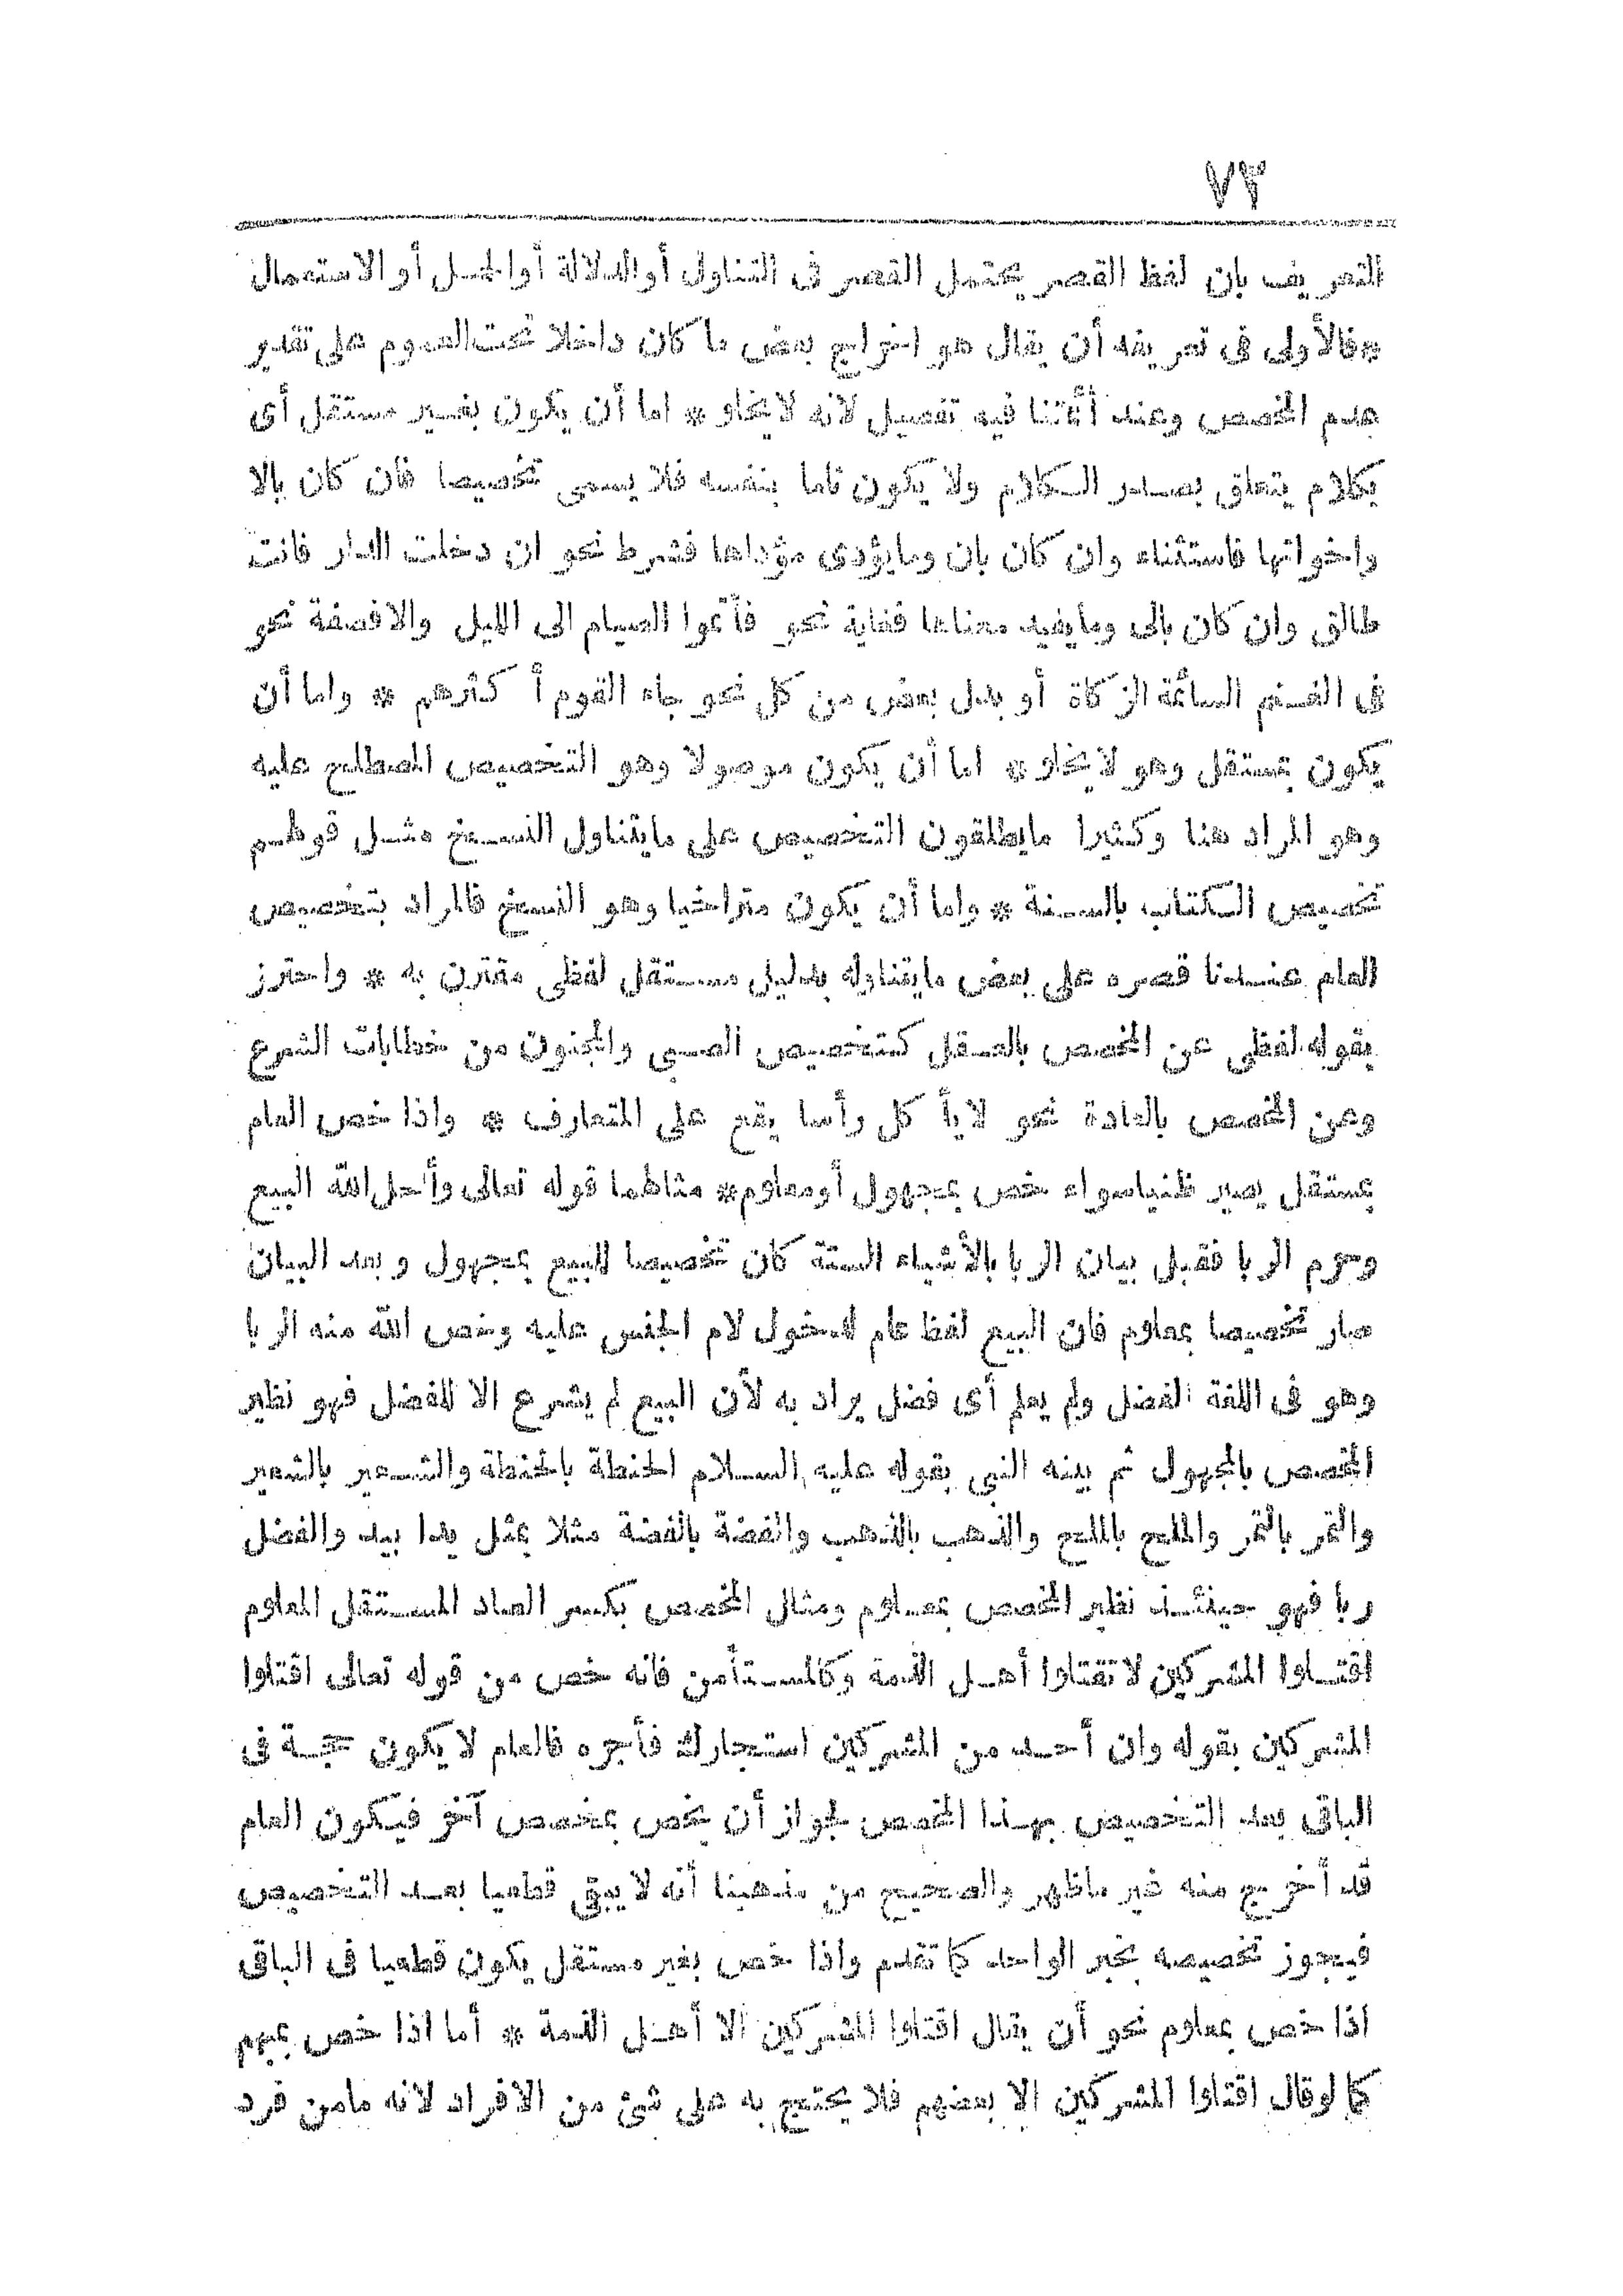 ٧٣
التعريف بان لفظ القصر يحتمل القصر فى التناول أو الدلالة أو الحمل أو الاستعمال
*فالأولى فى تعريفه أن يقال هو اخراج بعض ما كان داخلا تحت العموم على تقدير
عدم المخصص وعند أئمتنا فيه تفصيل لانه لا يخلو * اما أن يكون بغير مستقل أى
بكلام يتعلق بصدر الكلام ولا يكون تاما بنفسه فلا يسمى تخصيصا فان كان بالا
واخواتها فاستثناء وان كان بان وما يؤدى مؤداها فشرط نحو ان دخلت الدار فانت
طالق وان كان بالى وما يفيد معناها فغاية نحو فأتموا الصيام الى الليل والا فصفة نحو
فى الغنم السائمة الزكاة أو بدل بعض من كل نحو جاء القوم أكثرهم * واما أن
يكون بمستقل وهو لا يخلو * اما أن يكون موصولا وهو التخصيص المصطلح عليه
وهو المراد هنا وكثيرا ما يطلقون التخصيص على ما يتناول النسخ مثل قولهم
تخصيص الكتاب بالسنة * واما أن يكون متراخيا وهو النسخ فالمراد بتخصيص
العام عندنا قصره على بعض ما يتناوله بدليل مستقل لفظى مقترن به * واحترز
بقوله لفظى عن المخصص بالعقل كتخصيص الصبى والمجنون من خطابات الشرع
وعن المخصص بالعادة نحو لا يأكل رأسا يقع على المتعارف * واذا خص العام
بمستقل يصير ظنيا سواء خص بمجهول أو معلوم * مثالهما قوله تعالى وأحل الله البيع
وحرم الربا فقبل بيان الربا بالأشياء الستة كان تخصيصا للبيع بمجهول وبعد البيان
صار تخصيصا بمعلوم فان البيع لفظ عام لدخول لام الجنس عليه وخص الله منه الربا
وهو فى اللغة الفضل ولم يعلم أى فضل يراد به لأن البيع لم يشرع الا للفضل فهو نظير
المخصص بالمجهول ثم بينه النبى بقوله عليه السلام الحنطة بالحنطة والشعير بالشعير
والتمر بالتمر والملح بالملح والذهب بالذهب والفضة بالفضة مثلا بمثل يدا بيد والفضل
ربا فهو حينئذ نظير المخصص بمعلوم ومثال المخصص بكسر الصاد المستقل المعلوم
اقتلوا المشركين لا تقتلوا أهل الذمة وكالمستأمن فانه خص من قوله تعالى اقتلوا
المشركين بقوله وان أحد من المشركين استجارك فأجره فالعام لا يكون حجة فى
الباقى بعد التخصيص بهذا المخصص لجواز أن يخص بمخصص آخر فيكون العام
قد أخرج منه غير ما ظهر والصحيح من مذهبنا أنه لا يبقى قطعيا بعد التخصيص
فيجوز تخصيصه بخبر الواحد كما تقدم واذا خص بغير مستقل يكون قطعيا فى الباقى
اذا خص بمعلوم نحو أن يقال اقتلوا المشركين الا أهل الذمة * أما اذا خص بمبهم
كما لو قال اقتلوا المشركين الا بعضهم فلا يحتج به على شئ من الافراد لانه ما من فرد